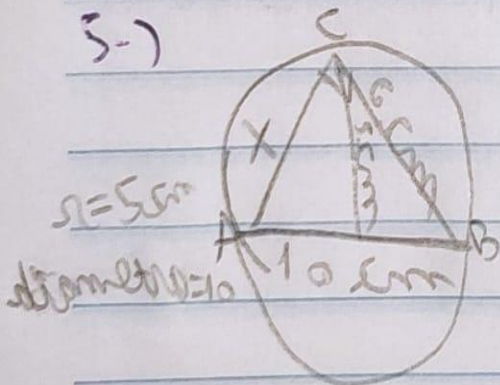 5-)
C
x
6 cm
5 cm
r=5cm
A
B
10 cm
diâmetro=10